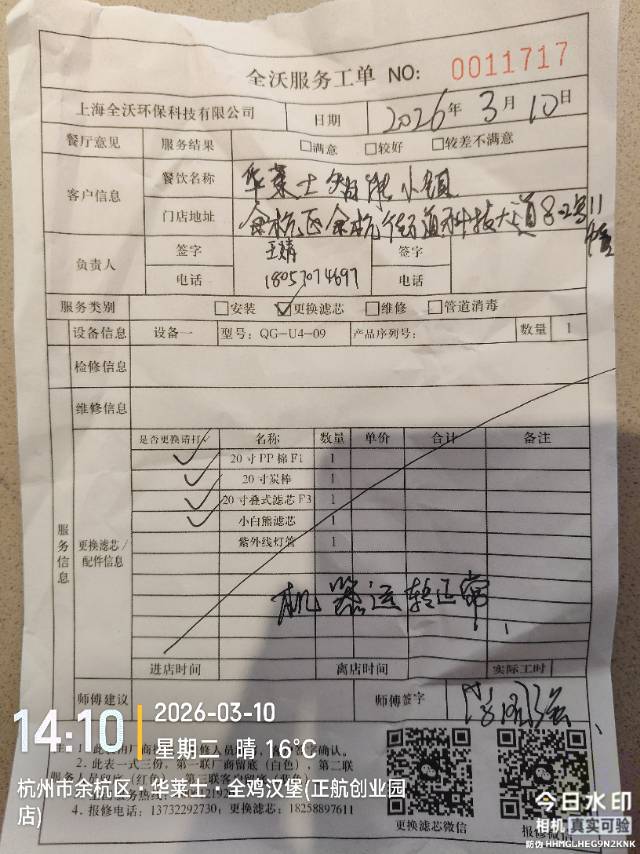 全沃服务工单 NO: 0011717
上海全沃环保科技有限公司 日期 2026年 3月 10日
餐厅意见 服务结果 □满意 □较好 □较差不满意
客户信息 餐饮名称 华莱士 小镇
门店地址 余杭区余杭街道科技大道8-2号11
负责人 签字 王婧 签字
电话 18057074697 电话
服务类别 □安装 ☑更换滤芯 □维修 □管道消毒
服务信息
设备信息 设备一 型号: QG-U4-09 产品序列号: 数量 1
检修信息
维修信息
更换滤芯/配件信息
是否更换请打✓ 名称 数量 单价 合计 备注
✓ 20寸PP棉F1 1
✓ 20寸炭棒 1
✓ 20寸叠式滤芯F3 1
✓ 小白熊滤芯 1
紫外线灯管 1
机器运转正常
进店时间 离店时间 实际工时
师傅建议 师傅签字
14:10
2026-03-10
星期二 晴 16℃
杭州市余杭区·华莱士·全鸡汉堡(正航创业园店)
2. 此表一式三份，第一联厂商留底（白色），第二联
4. 报修电话：13732292730；更换滤芯：18258897611
更换滤芯微信
报修微信
今日水印
相机 真实可验
防伪 HHMGLHEG9N2KNK